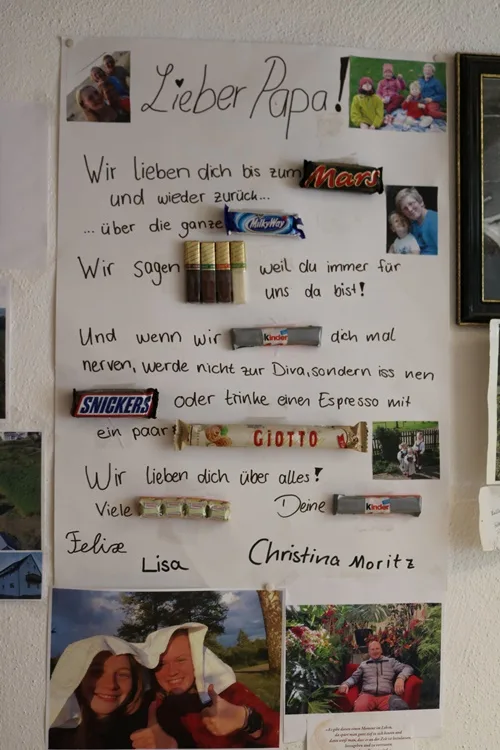 Lieber Papa!
Wir lieben dich bis zum Mars
und wieder zurück...
... über die ganze MilkyWay
Wir sagen weil du immer für
uns da bist!
Und wenn wir Kinder dich mal
nerven, werde nicht zur Diva, sondern iss nen
SNICKERS oder trinke einen Espresso mit
ein paar GiOTTO
Wir lieben dich über alles!
Viele Deine Kinder
Felix
Lisa
Christina Moritz